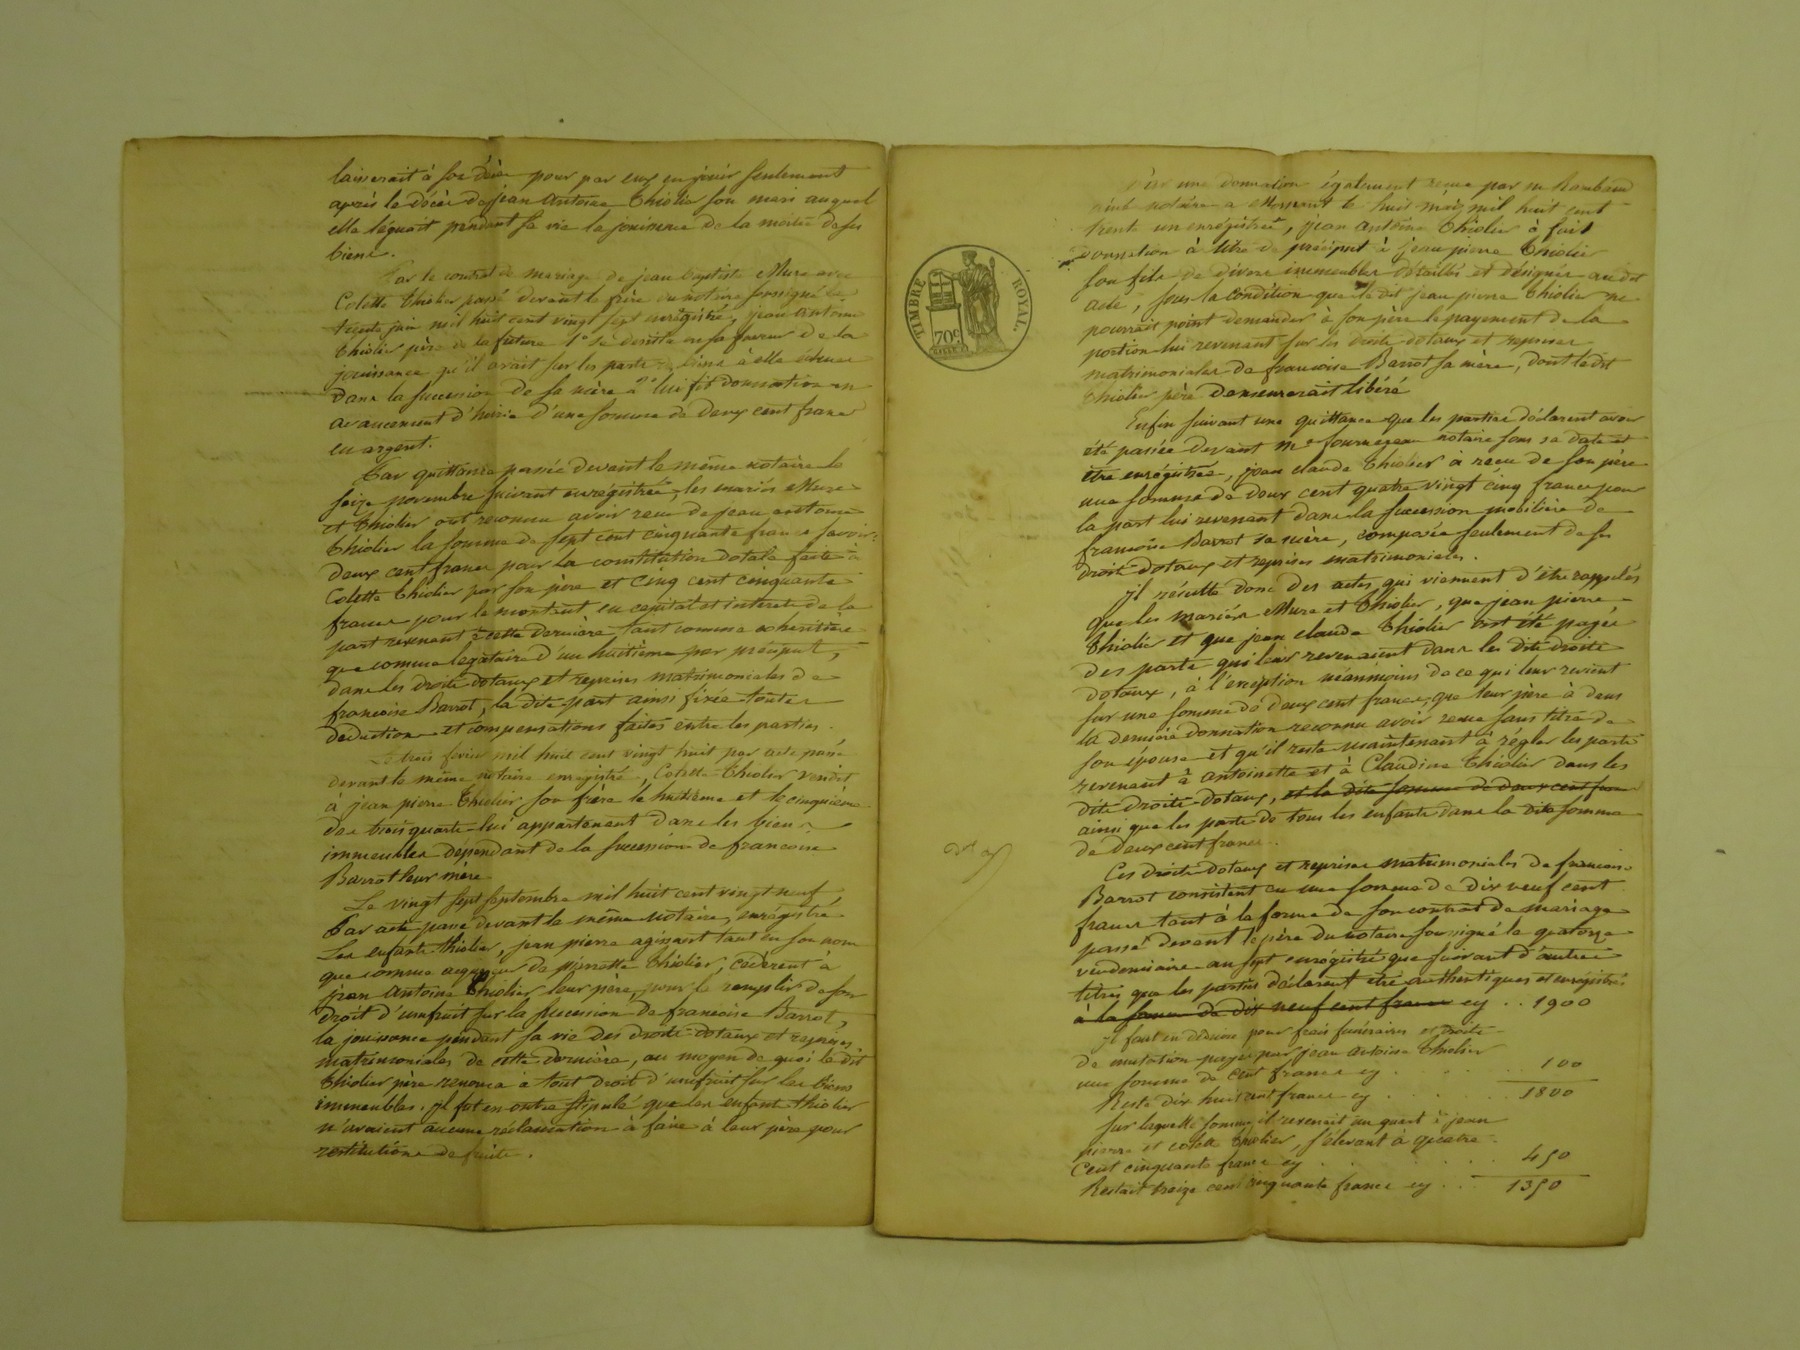 laisserait à son décès pour par eux en jouir seulement
après le décès de jean Antoine Thiolier son mari auquel
elle léguait pendant sa vie la jouissance de la moitié de ses
biens.
Par le contrat de mariage de jean baptiste Mure avec
Colette Thiolier passé devant le frère du notaire soussigné le
trente juin mil huit cent vingt sept enregistré, jean Antoine
Thiolier père de la future 1° se désista en sa faveur de la
jouissance qu'il avait sur les parts de biens à elle échues
dans la succession de sa mère 2° lui fit donnation en
avancement d'hoirie d'une somme de deux cent francs
en argent.
Par quittance passée devant le même notaire le
seize novembre suivant enregistrée, les mariés Mure
et Thiolier ont reconnu avoir reçu de jean antoine
Thiolier la somme de sept cent cinquante francs savoir:
deux cent francs pour la constitution dotale faite à
Colette Thiolier par son père et cinq cent cinquante
francs pour le montant en capital et interets de la
part revenant à cette dernière tant comme cohéritière
que comme légataire d'un huitième par préciput,
dans les droits dotaux et reprises matrimoniales de
françoise Barrot, la dite part ainsi fixée toutes
déductions et compensations faites entre les parties.
Le trois février mil huit cent vingt huit par acte passé
devant le même notaire enregistré, Colette Thiolier vendit
à jean pierre Thiolier son frère le huitième et le cinquième
des trois quarts lui appartenant dans les biens
immeubles dépendant de la succession de françoise
Barrot leur mère
Le vingt sept septembre mil huit cent vingt neuf
Par acte passé devant le même notaire, enregistré
Les enfants thiolier, jean pierre agissant tant en son nom
que comme acquéreur de pierrette Thiolier, cédèrent à
jean Antoine Thiolier leur père, pour le remplir de son
droit d'usufruit sur la succession de françoise Barrot,
la jouissance pendant sa vie des droits dotaux et reprises
matrimoniales de cette dernière, au moyen de quoi le dit
Thiolier père renonça à tout droit d'usufruit sur les biens
immeubles. Il fut en outre stipulé que les enfants thiolier
n'avaient aucune réclamation à faire à leur père pour
restitution de fruits.
TIMBRE ROYAL.
70c
Par une donnation également reçue par me Rambaud
notaire a Mornant le huit mars mil huit cent
trente un enregistrée, jean antoine Thiolier à fait
donnation à titre de préciput à jean pierre Thiolier
son fils de divers immeubles détaillés et désignés au dit
acte, sous la condition que le dit jean pierre Thiolier ne
pourrait point demander à son père le payement de la
portion lui revenant sur les droits dotaux et reprises
matrimoniales de françoise Barrot sa mère, dont le dit
Thiolier père demeurerait libéré
Enfin suivant une quittance que les parties déclarent avoir
été passée devant me fournereau notaire sous sa date et
être enregistrée, jean claude Thiolier à reçu de son père
une somme de deux cent quatre vingt cinq francs pour
la part lui revenant dans la succession mobilière de
françoise Barrot sa mère, composée seulement de ses
droits dotaux et reprises matrimoniales.
Il résulte donc des actes qui viennent d'être rappelés
que les mariés Mure et Thiolier, que jean pierre
Thiolier et que jean claude Thiolier ont été payés
des parts qui leur revenaient dans les dits droits
dotaux, à l'exception néanmoins de ce qui leur revient
sur une somme de deux cent francs, que leur père à dans
la dernière donnation reconnu avoir reçue sans titre de
son épouse et qu'il reste maintenant à régler les parts
revenant à antoinette et à Claudine Thiolier dans les
dits droits dotaux, et la dite somme de deux cent francs
ainsi que les parts de tous les enfants dans la dite somme
de deux cent francs.
Ces droits dotaux et reprises matrimoniales de françoise
Barrot consistent en une somme de dix neuf cent
francs tant à la forme de son contrat de mariage
passé devant le père du notaire soussigné le quatorze
vendemiaire an sept enregistré que suivant d'autres
titres que les parties déclarent être authentiques et enregistrés
à la somme de dix neuf cent francs cy . . 1900
Il faut en déduire pour frais funéraires et droits
de mutation payés par jean antoine Thiolier
une somme de cent francs cy . . . . . . 100
Reste dix huit cent francs cy . . . . . 1800
Sur laquelle somme il revenait un quart à jean
pierre et colette Thiolier, s'élevant à quatre
Cent cinquante francs cy . . . . . . 450
Restait treize cent cinquante francs cy . . . 1350